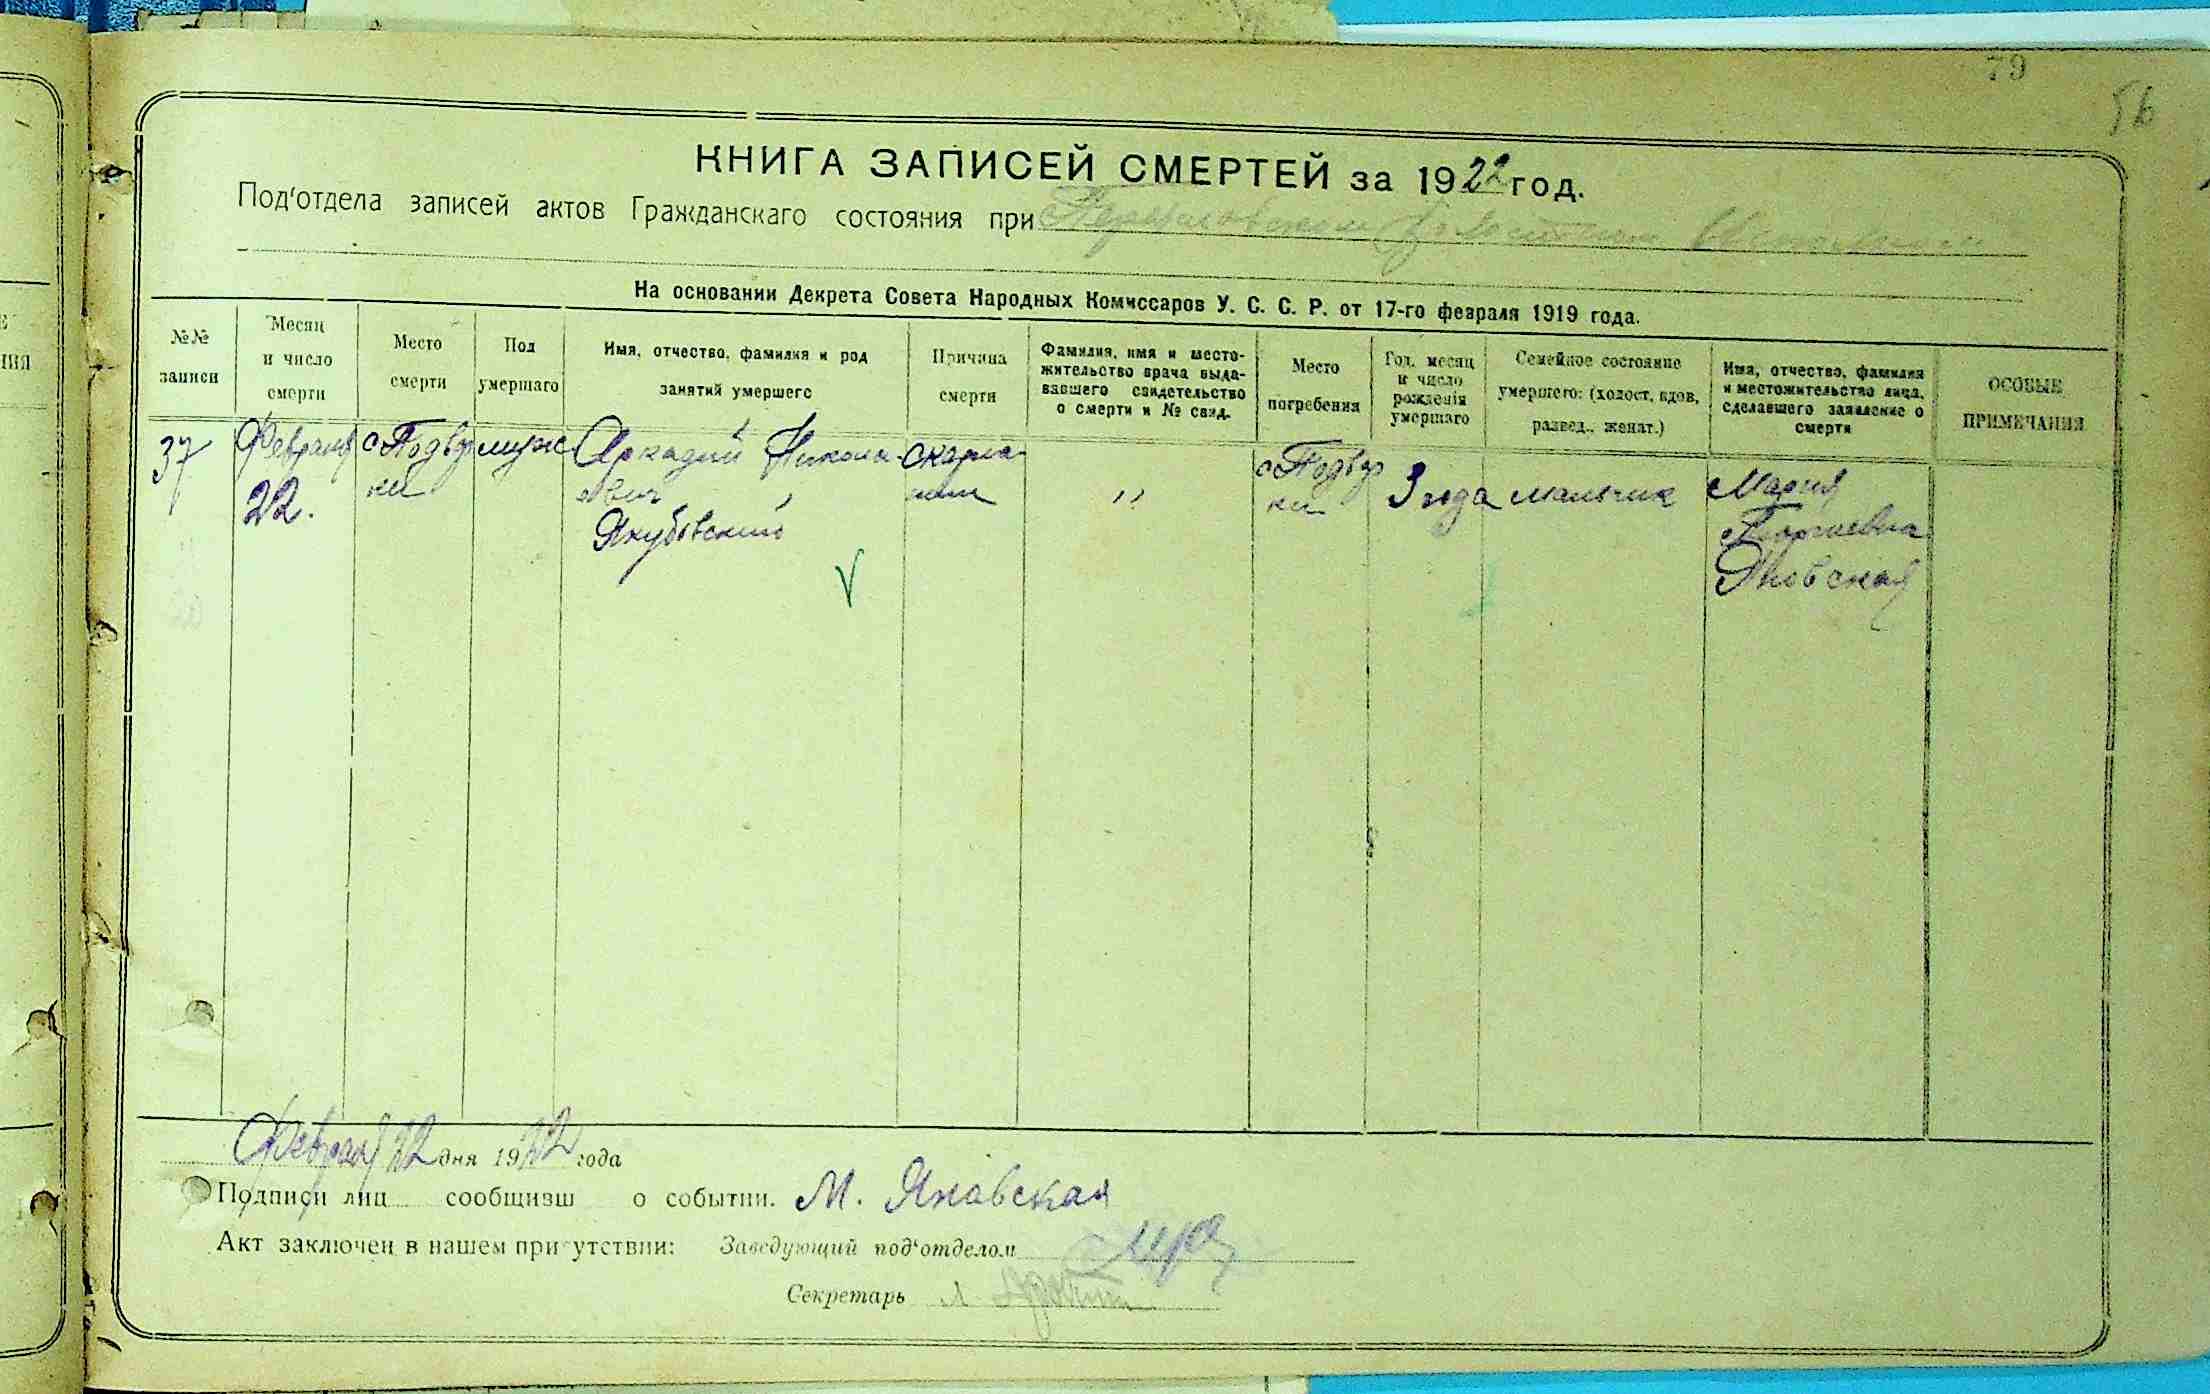 79
56
КНИГА ЗАПИСЕЙ СМЕРТЕЙ за 1922 год.
Под'отдела записей актов Гражданскаго состояния при
На основании Декрета Совета Народных Комиссаров У. С. С. Р. от 17-го февраля 1919 года.
№№ записи
Месяц и число смерти
Место смерти
Пол умершаго
Имя, отчество, фамилия и род занятий умершего
Причина смерти
Фамилия, имя и место-жительство врача выда-вавшего свидетельство о смерти и № свид.
Место погребения
Год, месяц и число рождения умершаго
Семейное состояние умершего: (холост, вдов, развед., женат.)
Имя, отчество, фамилия и местожительство лица, сделавшего заявление о смерти
ОСОБЫЕ ПРИМЕЧАНИЯ
37
Февраля
22.
с Подвур
ки
муж
Аркадий Никола
евич
Якубовский
скарла
тина
"
с Подвур
ки
3 года
мальчик
Мария
Георгиевна
Яновская
Февраля 22 дня 1922 года
Подписи лиц сообщивш о событии. М. Яновская
Акт заключен в нашем присутствии: Заведующий под'отделом
Секретарь